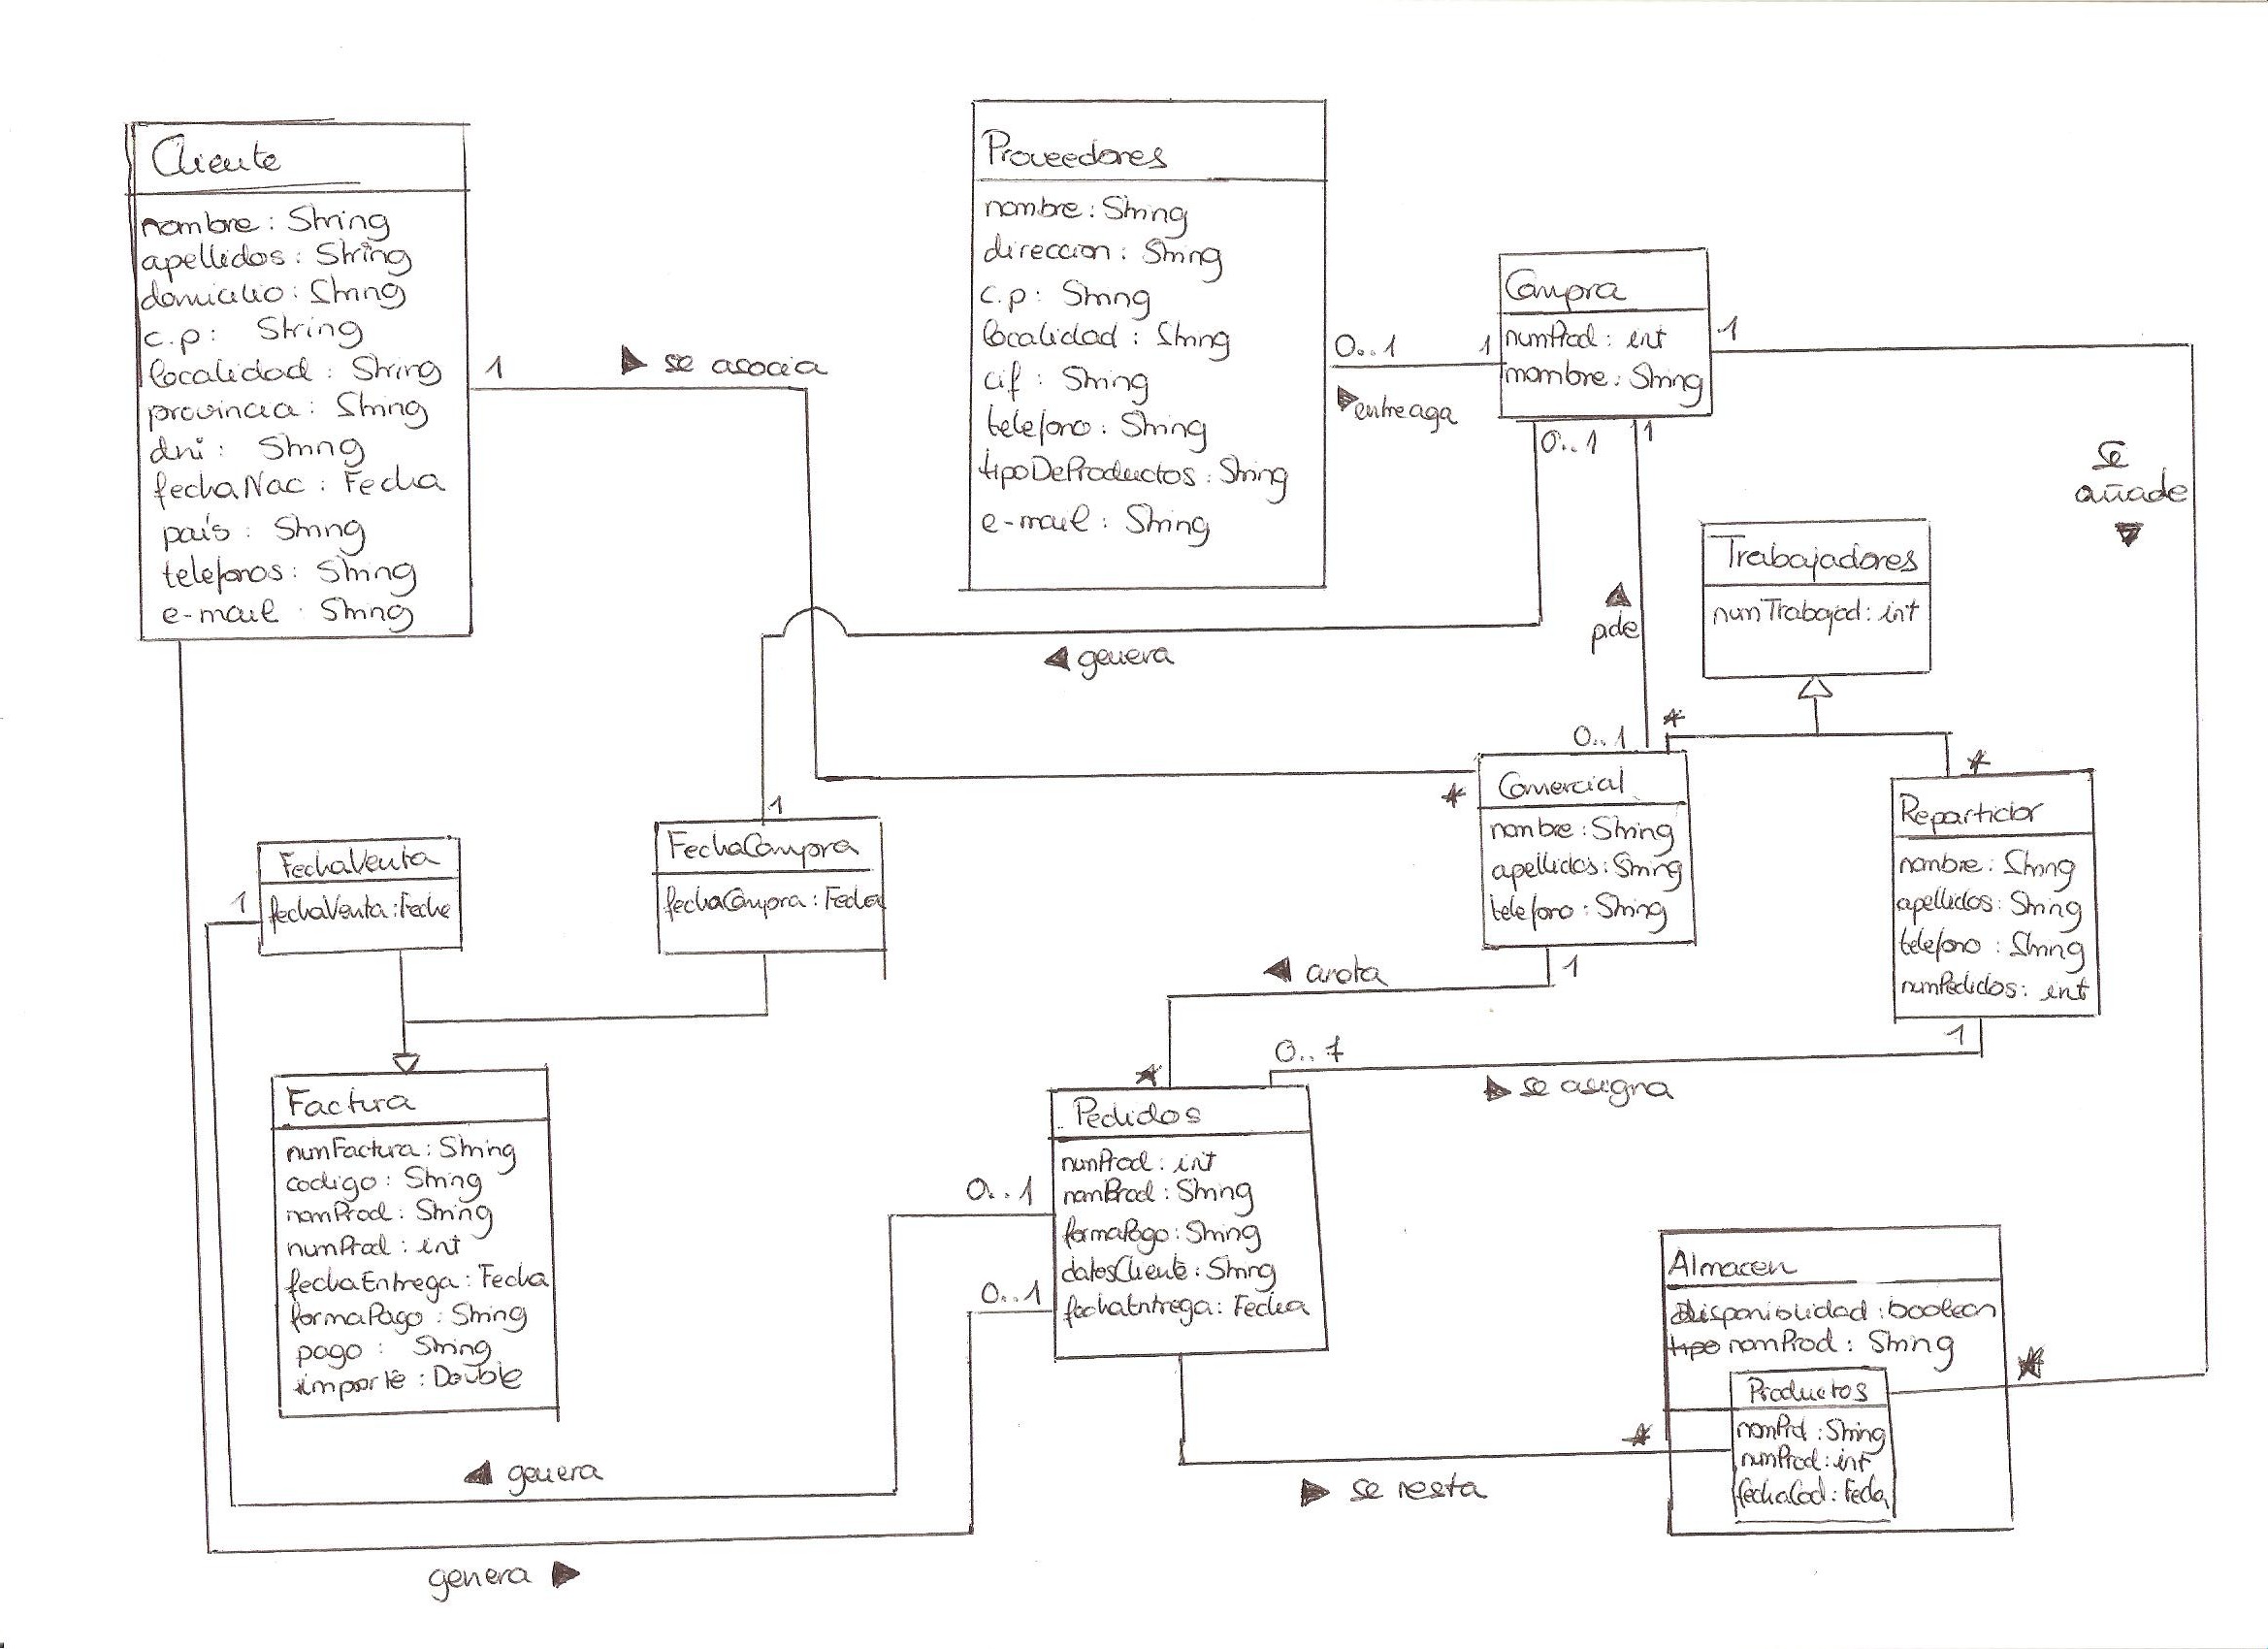 Cliente
nombre: String
apellidos: String
domicilio: String
c.p: String
localidad: String
provincia: String
dni: String
fechaNac: Fecha
país: String
telefonos: String
e-mail: String
Proveedores
nombre: String
direccion: String
c.p: String
localidad: String
cif: String
telefono: String
tipoDeProductos: String
e-mail: String
Compra
numProd: int
nombre: String
1
se asocia
0..1
1
entreaga
1
0..1
1
se
añade
Trabajadores
numTrabajad: int
pide
genera
0..1
*
*
*
1
Comercial
nombre: String
apellidos: String
telefono: String
Repartidor
nombre: String
apellidos: String
telefono: String
numPedidos: int
FechaVenta
fechaVenta: Fecha
1
FechaCompra
fechaCompra: Fecha
anota
1
1
0..7
se asigna
*
Factura
numFactura: String
codigo: String
nomProd: String
numProd: int
fechaEntrega: Fecha
formaPago: String
pago: String
importe: Double
Pedidos
numProd: int
nomProd: String
formaPago: String
datosCliente: String
fechaEntrega: Fecha
0..1
0..1
Almacen
disponibilidad: boolean
tipo nomProd: String
*
Productos
nomPrd: String
numProd: int
fechaCad: Fecha
*
genera
se resta
genera